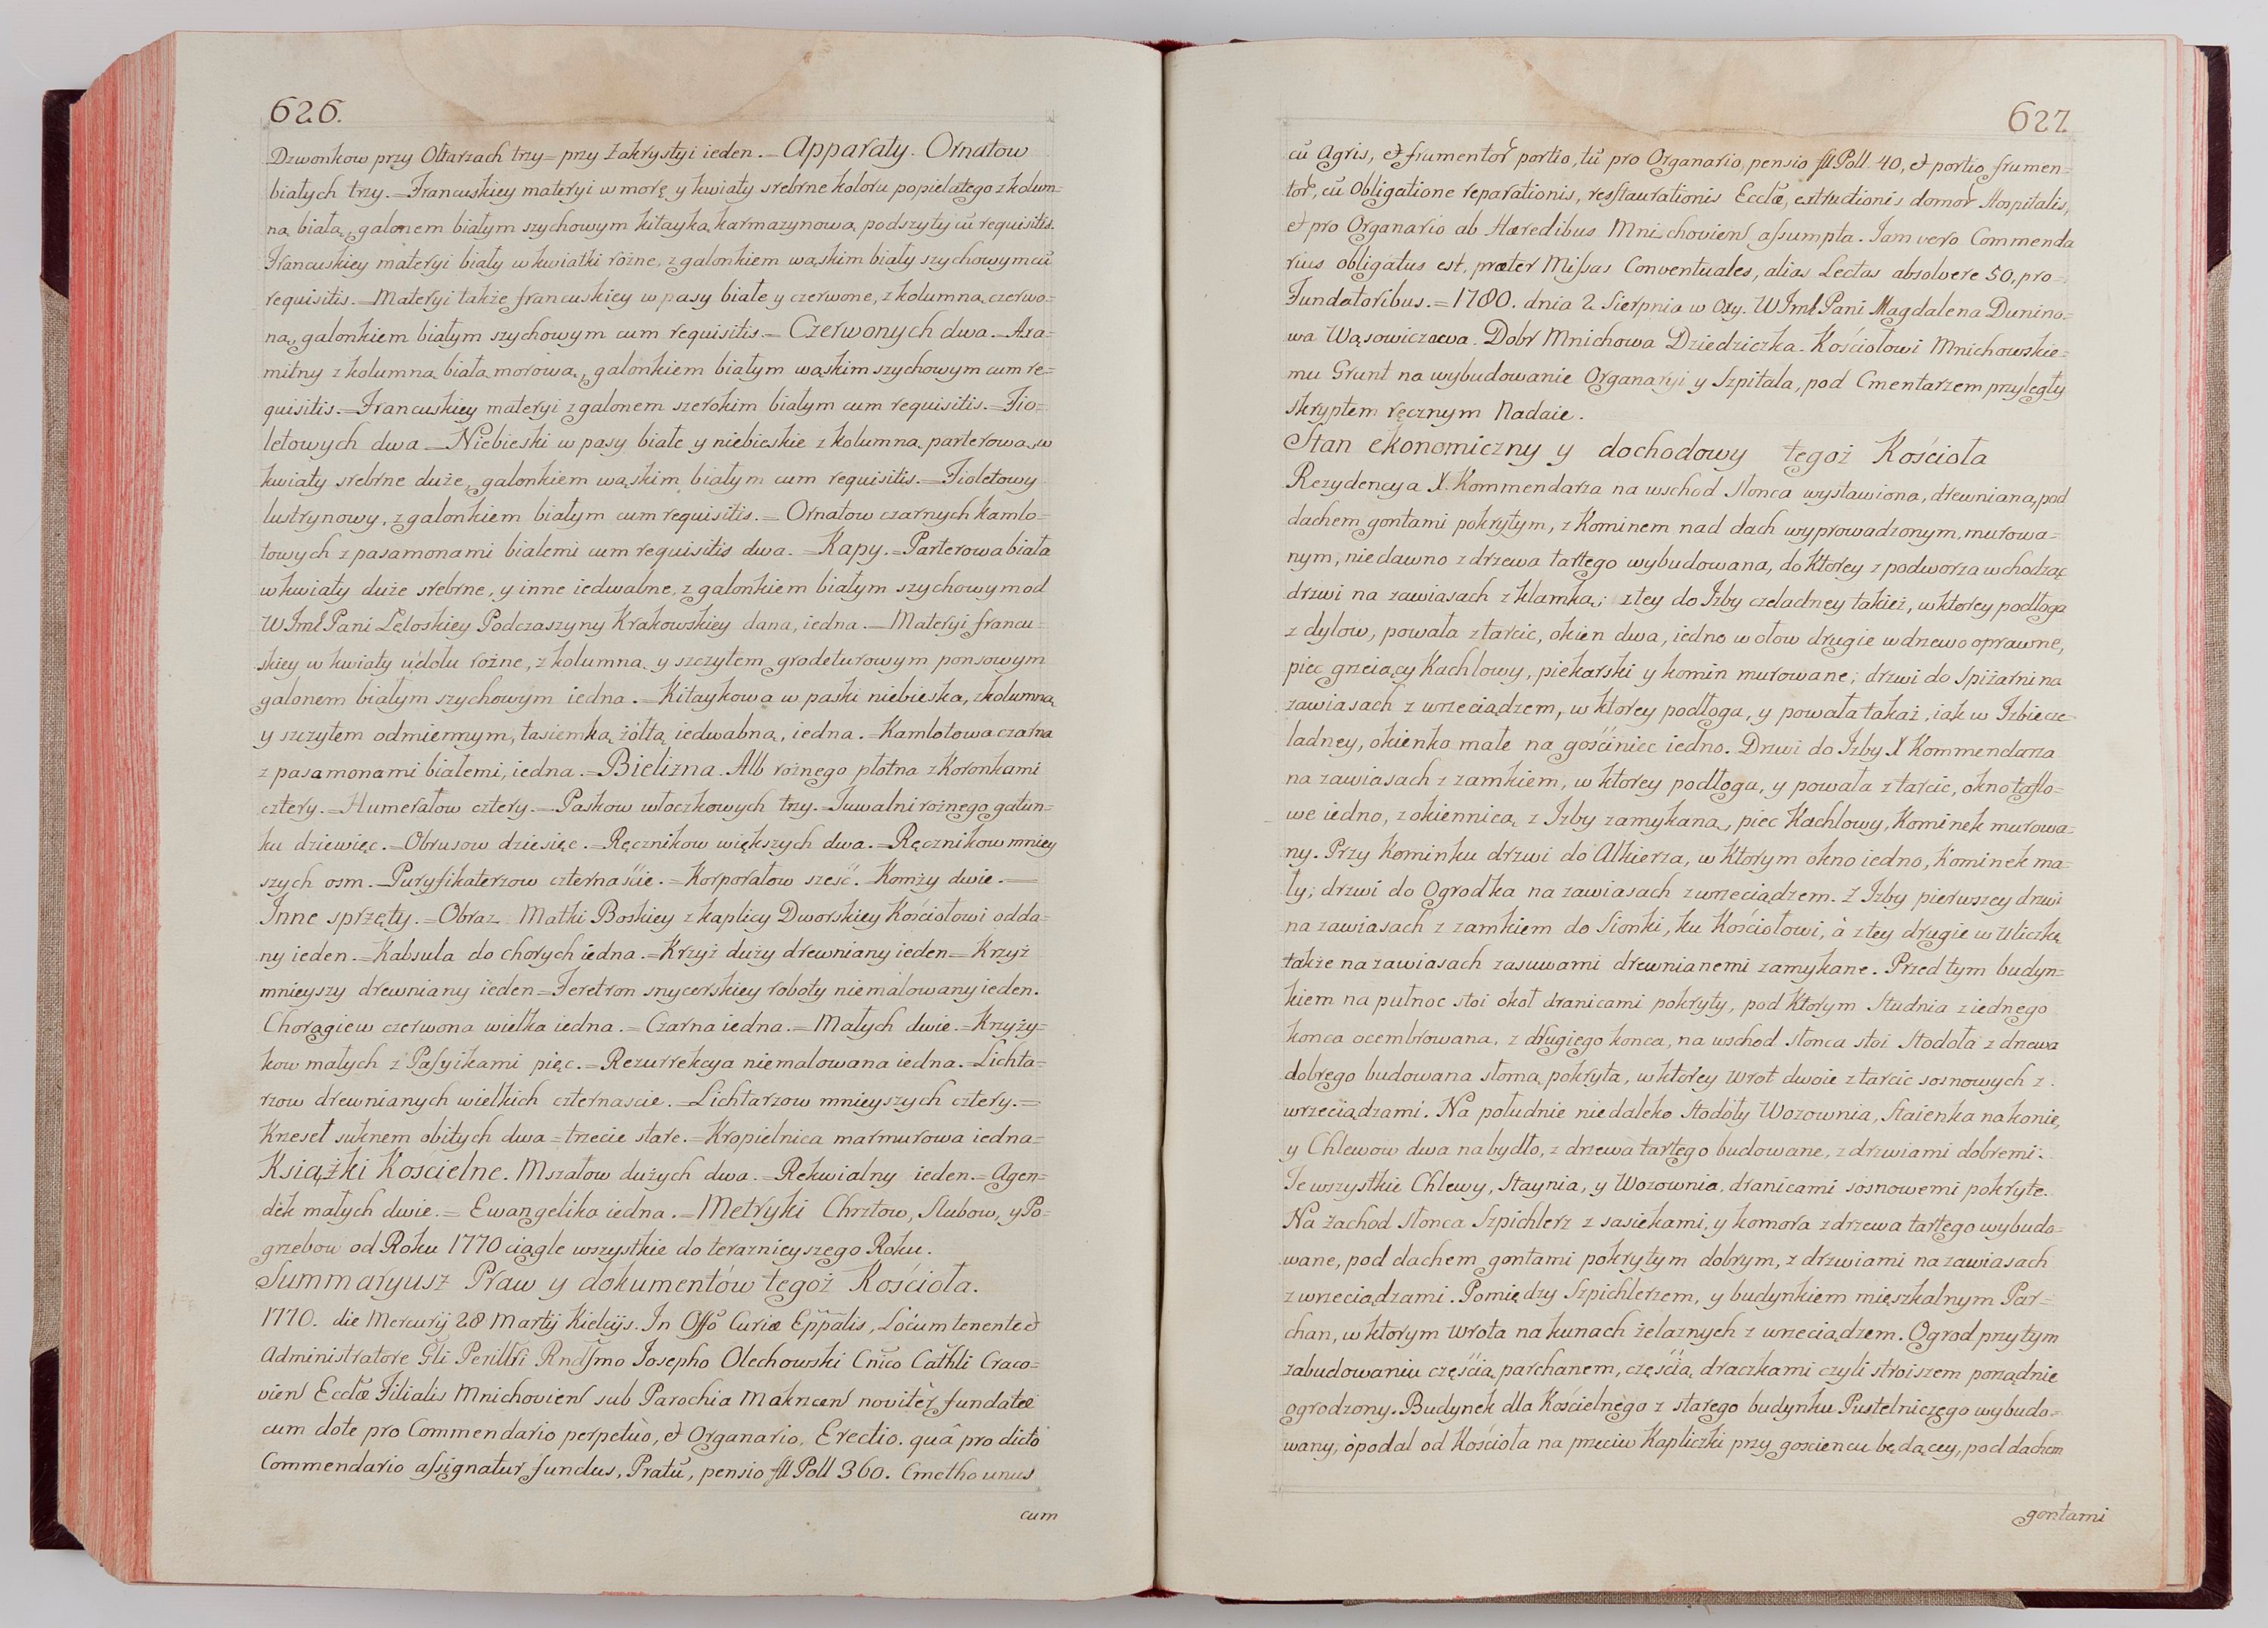 626.
Dzwonkow przy Ołtarzach trzy = przy Zakrystyi ieden. = Apparaty. Ornatow
białych trzy. = Francuskiey materyi w morę y kwiaty srebrne koloru popielatego z kolum=
ną białą, galonem białym szychowym kitayką karmazynową podszyty cũ requisitis.
Francuskiey materyi biały w kwiatki rożne, z galonkiem wąskim biały szychowym cũ
requisitis. = Materyi także francuskiey w pasy białe y czerwone, z kolumną czerwo=
ną, galonkiem białym szychowym cum requisitis. = Czerwonych dwa. = Axa=
mitny z kolumną białą morową, galonkiem białym wąskim szychowym cum re=
quisitis. = Francuskiey materyi z galonem szerokim białym cum requisitis. = Fio=
letowych dwa = Niebieski w pasy białe y niebieskie z kolumną parterową w
kwiaty srebrne duże, galonkiem wąskim białym cum requisitis. = Fioletowy
lustrynowy, z galonkiem białym cum requisitis. = Ornatow czarnych kamlo=
towych z pasamonami białemi cum requisitis dwa. = Kapy. = Parterowa biała
w kwiaty duże srebrne, y inne iedwabne, z galonkiem białym szychowym od
W JmṜ Pani Lętoskiey Podczaszyny Krakowskiey dana, iedna. = Materyi francu=
skiey w kwiaty u dołu rożne, z kolumną y szczytem grodeturowym ponsowym
galonem białym szychowym iedna. = Kitaykowa w paski niebieska, z kolumną
y szczytem odmiennym, tasiemką żółtą iedwabną, iedna. = Kamlotowa czarna
z pasamonami białemi, iedna. = Bielizna. Alb rożnego płotna z Koronkami
cztery. = Humerałow cztery. = Paskow włoczkowych trzy. = Tuwalni rożnego gatun=
ku dziewięc. = Obrusow dziesięc. = Ręcznikow większych dwa. = Ręcznikow mniey
szych osm. = Puryfikaterzow czternaście. = Korporałow sześć. = Komży dwie. =
Inne sprzęty. = Obraz Matki Boskiey z kaplicy Dworskiey Kościołowi odda=
ny ieden. = Kabsula do chorych iedna. = Krzyż duży drewniany ieden = Krzyż
mnieyszy drewniany ieden = Feretron snycerskiey roboty niemálowany ieden.
Chorągiew czerwona wielka iedna. = Czarna iedna. = Małych dwie. = Krzyży=
kow małych z Paſyikami pięc. = Rezurrekcya niemalowana iedna. = Lichta=
rzow drewnianych wielkich czternascie. = Lichtarzow mnieyszych cztery. =
Krzeseł suknem obitych dwa = trzecie stare. = Kropielnica marmurowa iedna =
Książki Kościelne. Mszałow dużych dwa. = Rekwialny ieden. = Agen=
dek małych dwie. = Ewangelika iedna. = Metryki Chrztow, Slubow, y Po=
grzebow od Roku 1770 ciągle wszystkie do teraznieyszego Roku.
Summaryusz Praw y dokumentów tegoż Kościoła.
1770. die Mercurij 28 Martij Kielcijs. In Offo Curiæ Eppalis, Locum tenente et
Administratore Gli Perillri Rndſmo Josepho Olechowski Cnico Cathli Craco=
vien Ecclæ Filialis Mnichovien sub Parochia Makncen noviter fundatæ
cum dote pro Commendario perpetùo, et Organario, Erectio. quâ pro dicto
Commendario aſsignatur fundus, Pratũ, pensio fl Poll 360. Cmetho unus
cum
627
cũ Agris, et frumentor portio, tũ pro Organario, pensio fl Poll. 40, et portio frumen=
tor, cũ Obligatione reparationis, resſtaurationis Ecclæ, extructionis domor Hospitalis,
et pro Organario ab Hæredibus Mnichovien aſsumpta. Iam vero Commenda
rius obligatus est, præter Miſsas Conventuales, alias Lectas absolvere 50, pro=
Fundatoribus. = 1780. dnia 2 Sierpnia w Oxy. W JmṜ Pani Magdalena Dunino=
wa Wąsowiczowa. Dobr Mnichowa Dziedziczka. Kościołowi Mnichowskie=
mu Grunt na wybudowanie Organaryi y Szpitala, pod Cmentarzem przyległy
skryptem ręcznym Nadaie.
Stan ekonomiczny y dochodowy tegoż Kościoła
Rezydencya X. Kommendarza na wschod słonca wystawiona, drewniana, pod
dachem gontami pokrytym, z Kominem nad dach wyprowadzonym, murowa=
nym, niedawno z drzewa tartego wybudowana, do Ktorey z podworza wchodząc
drzwi na zawiasach z klamką; z tey do Izby czeladney takież, w ktorey podłoga
z dylow, powała z tarcic, okien dwa, iedno w ołow drugie w drzewo oprawne,
piec grzeiący Kachlowy, piekarski y komin murowane; drzwi do Spiżarni na
zawiasach z wrzeciądzem, w ktorey podłoga, y powała takaż, iak w Izbie cze
ladney, okienko małe na gościniec iedno. Drzwi do Izby X Kommendarza
na zawiasach z zamkiem, w ktorey podłoga, y powała z tarcic, okno taflo=
we iedno, z okiennicą z Izby zamykaną, piec Kachlowy, Kominek murowa=
ny. Przy Kominku drzwi do Alkierza, w Ktorym okno iedno, Kominek ma=
ły; drzwi do Ogrodka na zawiasach z wrzeciądzem. Z Izby pierwszey drzwi
na zawiasach z zamkiem do Sionki, ku Kościołowi, à z tey drugie w Uliczkę
także na zawiasach zasuwami drewnianemi zamykane. Przed tym budyn=
kiem na pułnoc stoi okoł dranicami pokryty, pod Ktorym Studnia z iednego
konca ocembrowana, z drugiego konca, na wschod słonca stoi Stodoła z drzewa
dobrego budowana słomą pokryta, w ktorey Wrot dwoie z tarcic sosnowych z
wrzeciądzami. Na południe niedaleko Stodoły Wozownia, Staienka na konie,
y Chlewow dwa na bydło, z drzewa tartego budowane, z drzwiami dobremi.
Te wszystkie Chlewy, Staynia, y Wozownia, dranicami sosnowemi pokryte.
Na żachod słonca Szpichlerz z sasiekami, y komora z drzewa tartego wybudo=
wane, pod dachem gontami pokrytym dobrym, z drzwiami na zawiasach
z wrzeciądzami. Pomiędzy Szpichlerzem, y budynkiem mięszkalnym Par=
chan, w ktorym Wrota na kunach żelaznych z wrzeciądzem. Ogrod przy tym
zabudowaniu częścią parchanem, częścią draczkami czyli stroiszem porządnie
ogrodzony. Budynek dla Kościelnego z starego budynku Pustelniczego wybudo=
wany, òpodal od Kościoła na przeciw Kapliczki przy goscieńcu będącey, pod dachem
gontami